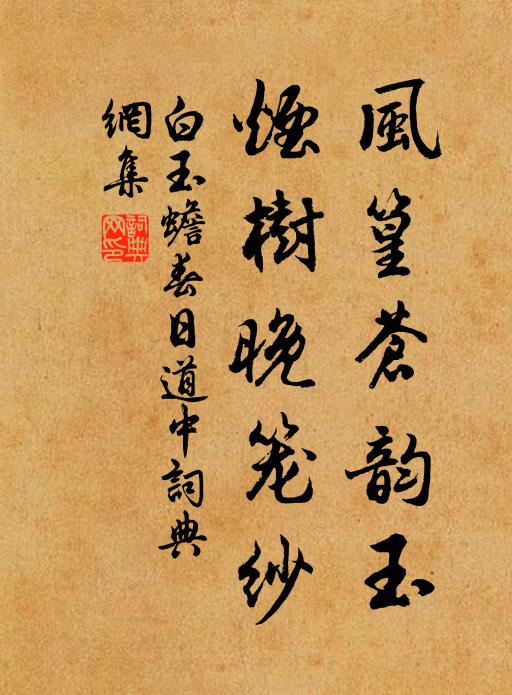 風篁蒼韵玉
煙樹晚笼紗
白玉蟾春日道中詞典
網集
詞典网印